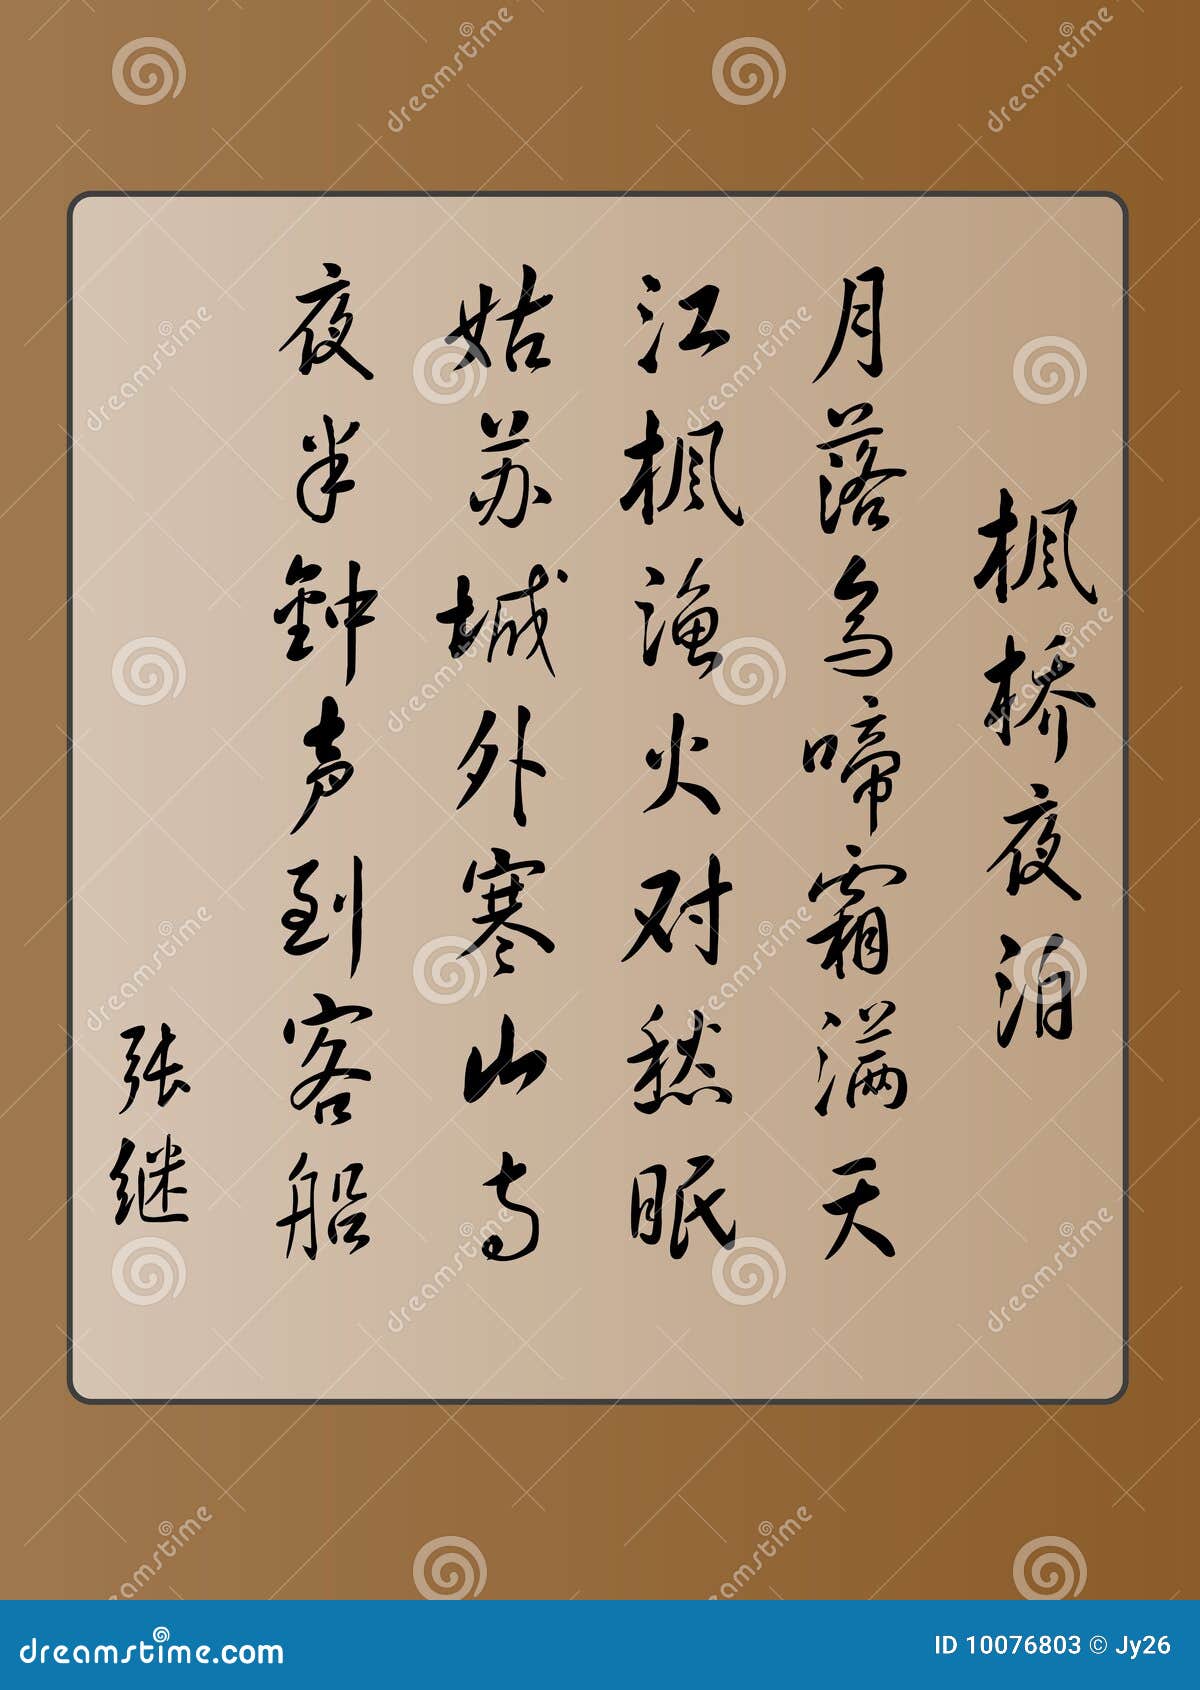 枫桥夜泊
月落乌啼霜满天
江枫渔火对愁眠
姑苏城外寒山寺
夜半钟声到客船
张继
dreamstime.com
ID 10076803 © Jy26